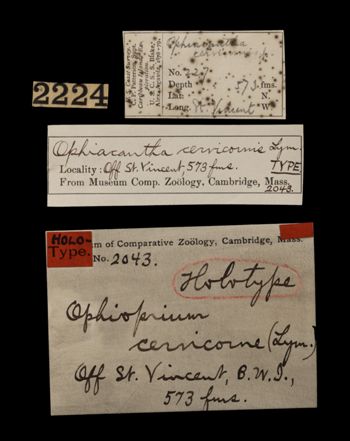 2224
U. S. Coast Survey,
C. P. Patterson, Supt.
Caribbean
U. S. C. S. S. Blake,
Ophiacantha
cervicornis
No. 22
Depth 573 fms.
Lat. N.
Long. St. Vincent W.
Ophiacantha cervicornis Lym.
TYPE
Locality: Off St. Vincent, 573 fms.
From Museum Comp. Zoölogy, Cambridge, Mass.
2043.
HOLO-
Type.
m of Comparative Zoölogy, Cambridge, Mass.
No. 2043.
Holotype
Ophioprium
cervicorne (Lym.)
Off St. Vincent, B.W.I.,
573 fms.